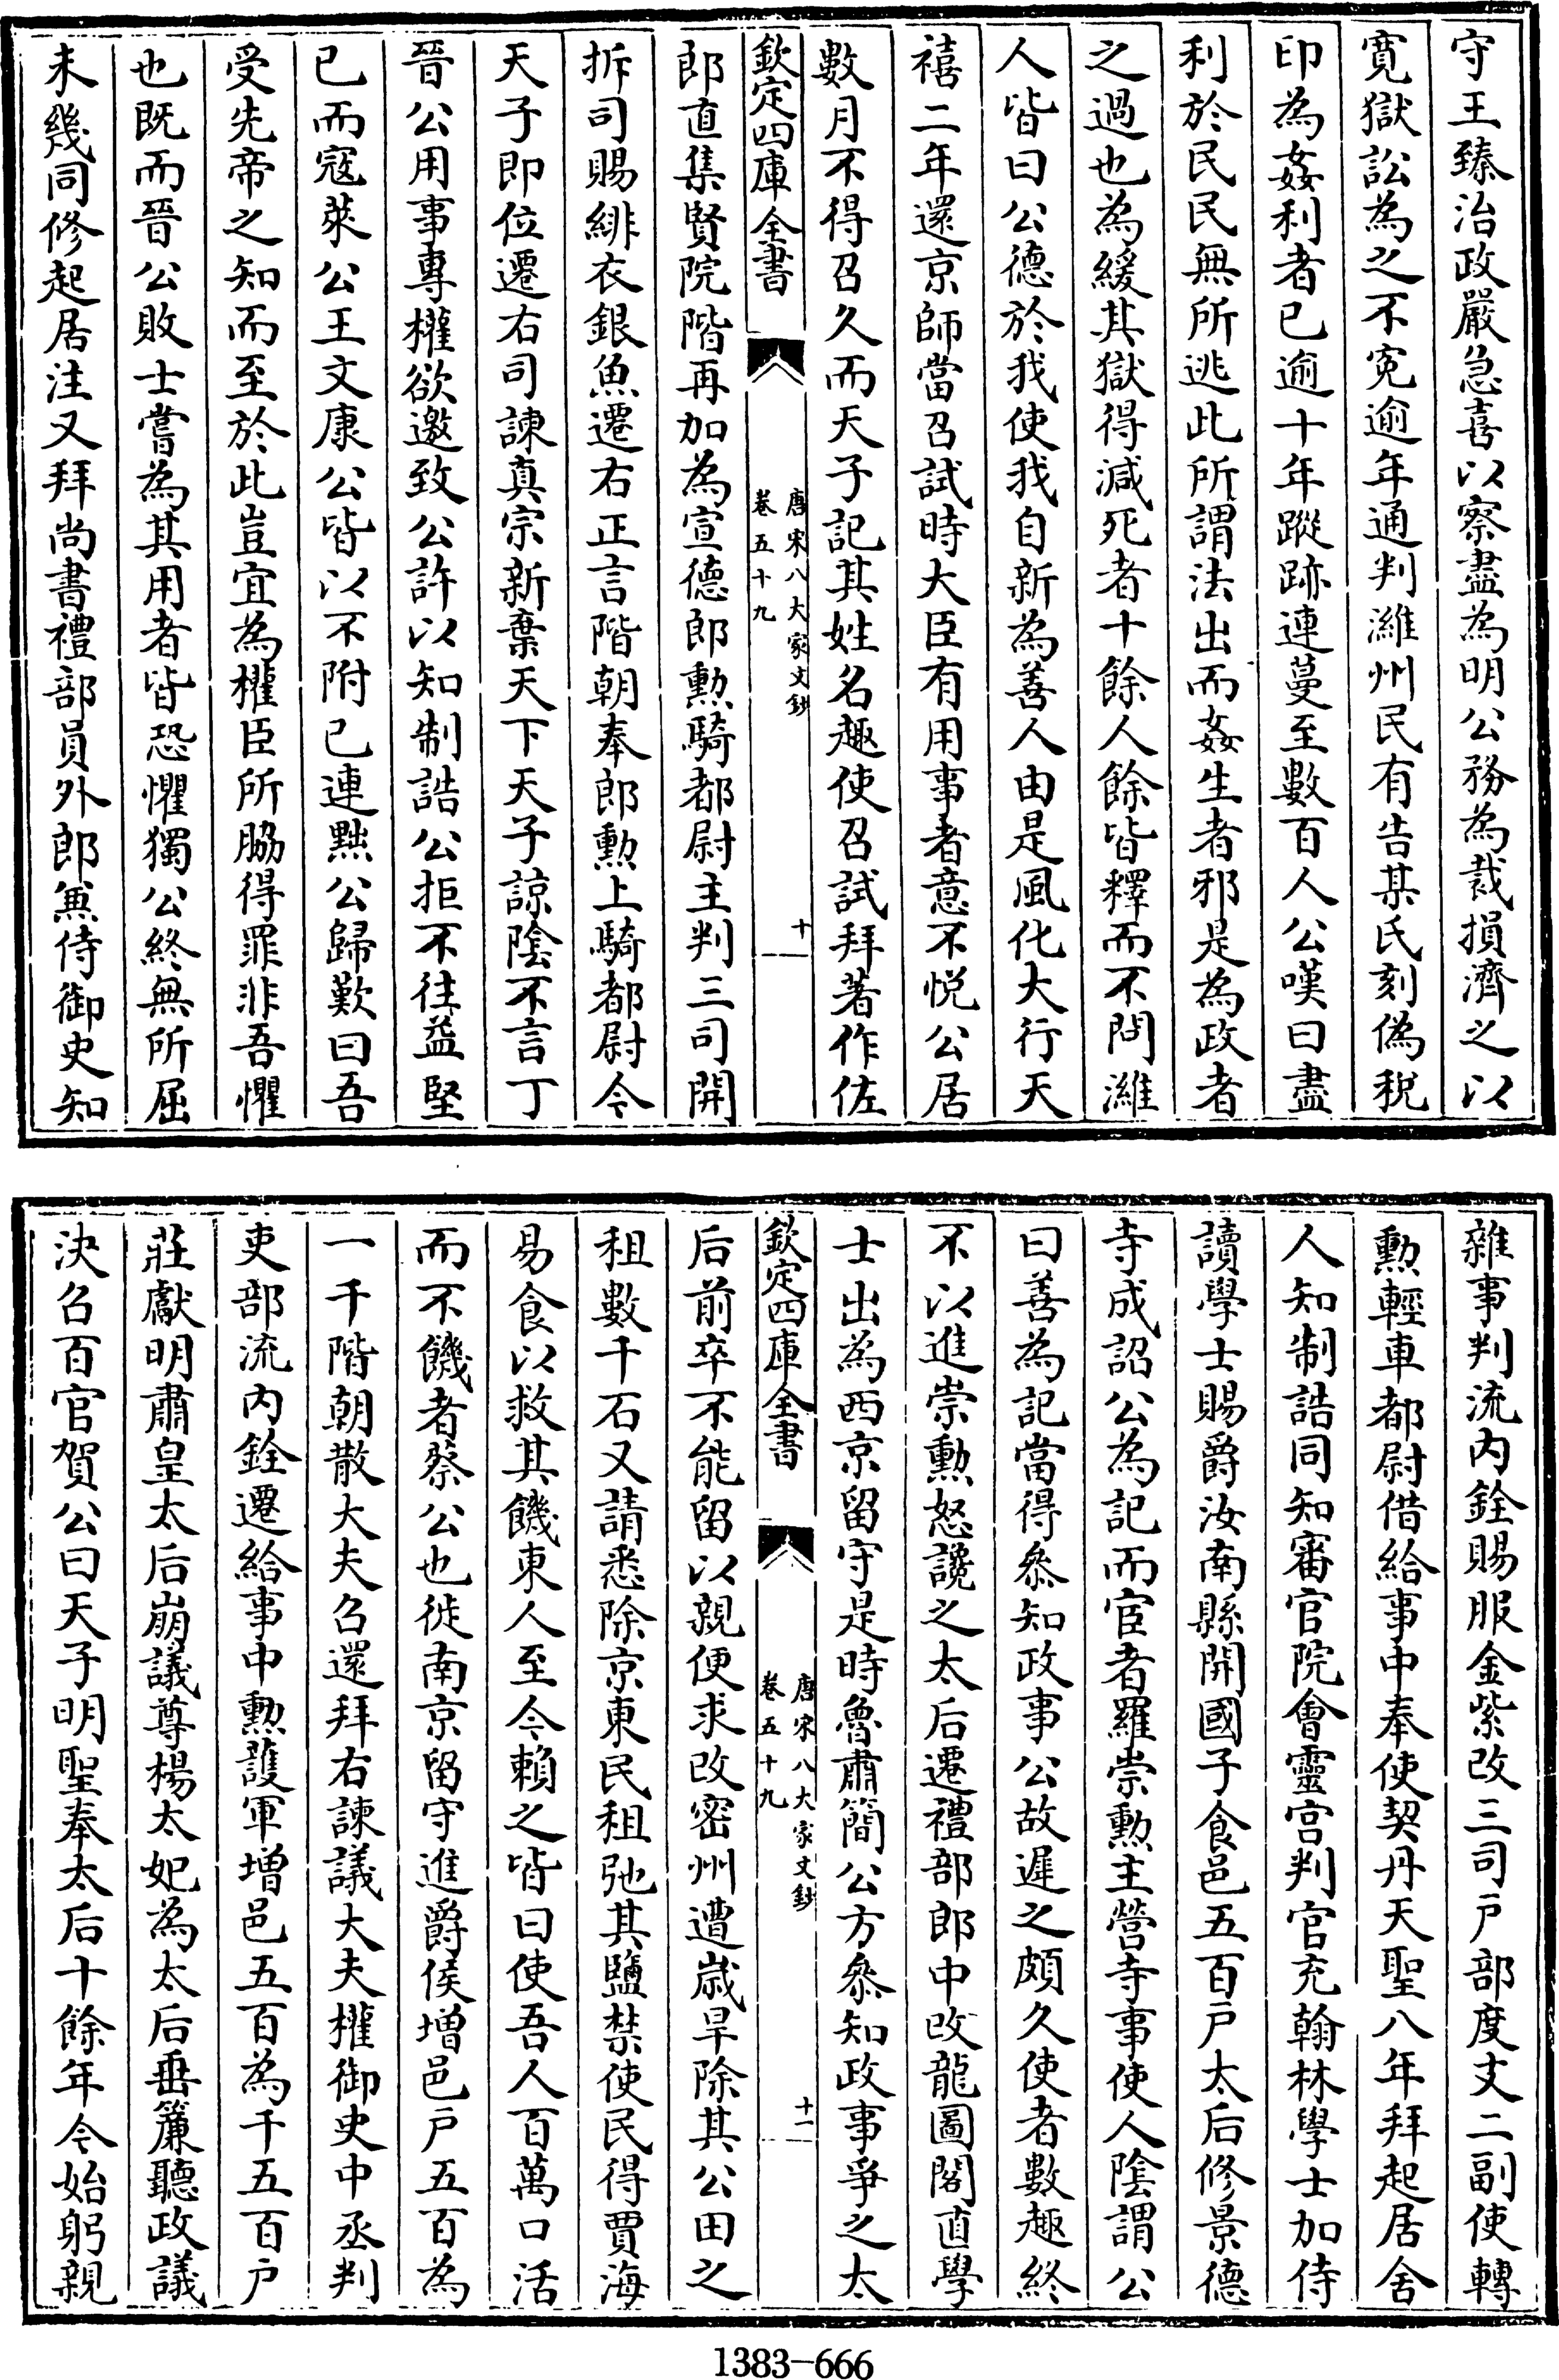 守王臻治政嚴急喜以察盡為明公務為裁損濟之以
寛獄訟為之不寃逾年通判濰州民有告某氏刻偽稅
印為姦利者已逾十年蹤跡連蔓至數百人公嘆曰盡
利於民民無所逃此所謂法出而姦生者邪是為政者
之過也為緩其獄得減死者十餘人餘皆釋而不問濰
人皆曰公德於我使我自新為善人由是風化大行天
禧二年還京師當召試時大臣有用事者意不悅公居
數月不得召久而天子記其姓名趣使召試拜著作佐
欽定四庫全書
唐宋八大家文鈔
卷五十九
十
郎直集賢院階再加為宣德郎勲騎都尉主判三司開
拆司賜緋衣銀魚遷右正言階朝奉郎勲上騎都尉今
天子即位遷右司諫真宗新棄天下天子諒陰不言丁
晉公用事專權欲邀致公許以知制誥公拒不往益堅
已而寇萊公王文康公皆以不附已連黜公歸歎曰吾
受先帝之知而至於此豈宜為權臣所脇得罪非吾懼
也既而晉公敗士嘗為其用者皆恐懼獨公終無所屈
未幾同修起居注又拜尚書禮部員外郎兼侍御史知
雜事判流内銓賜服金紫改三司戸部度支二副使轉
勲輕車都尉借給事中奉使契丹天聖八年拜起居舍
人知制誥同知審官院會靈宫判官充翰林學士加侍
讀學士賜爵汝南縣開國子食邑五百戸太后修景德
寺成詔公為記而宦者羅崇勲主營寺事使人陰謂公
曰善為記當得參知政事公故遲之頗久使者數趣終
不以進崇勲怒讒之太后遷禮部郎中改龍圖閣直學
士出為西京留守是時魯肅簡公方參知政事爭之太
欽定四庫全書
唐宋八大家文鈔
卷五十九
十一
后前卒不能留以親便求改密州遭歲旱除其公田之
租數千石又請悉除京東民租弛其鹽禁使民得賈海
易食以救其饑東人至今賴之皆曰使吾人百萬口活
而不饑者蔡公也徙南京留守進爵侯增邑戸五百為
一千階朝散大夫召還拜右諫議大夫權御史中丞判
吏部流内銓遷給事中勲護軍增邑五百為千五百戸
莊獻明肅皇太后崩議尊楊太妃為太后垂簾聽政議
決召百官賀公曰天子明聖奉太后十餘年今始躬親
1383-666